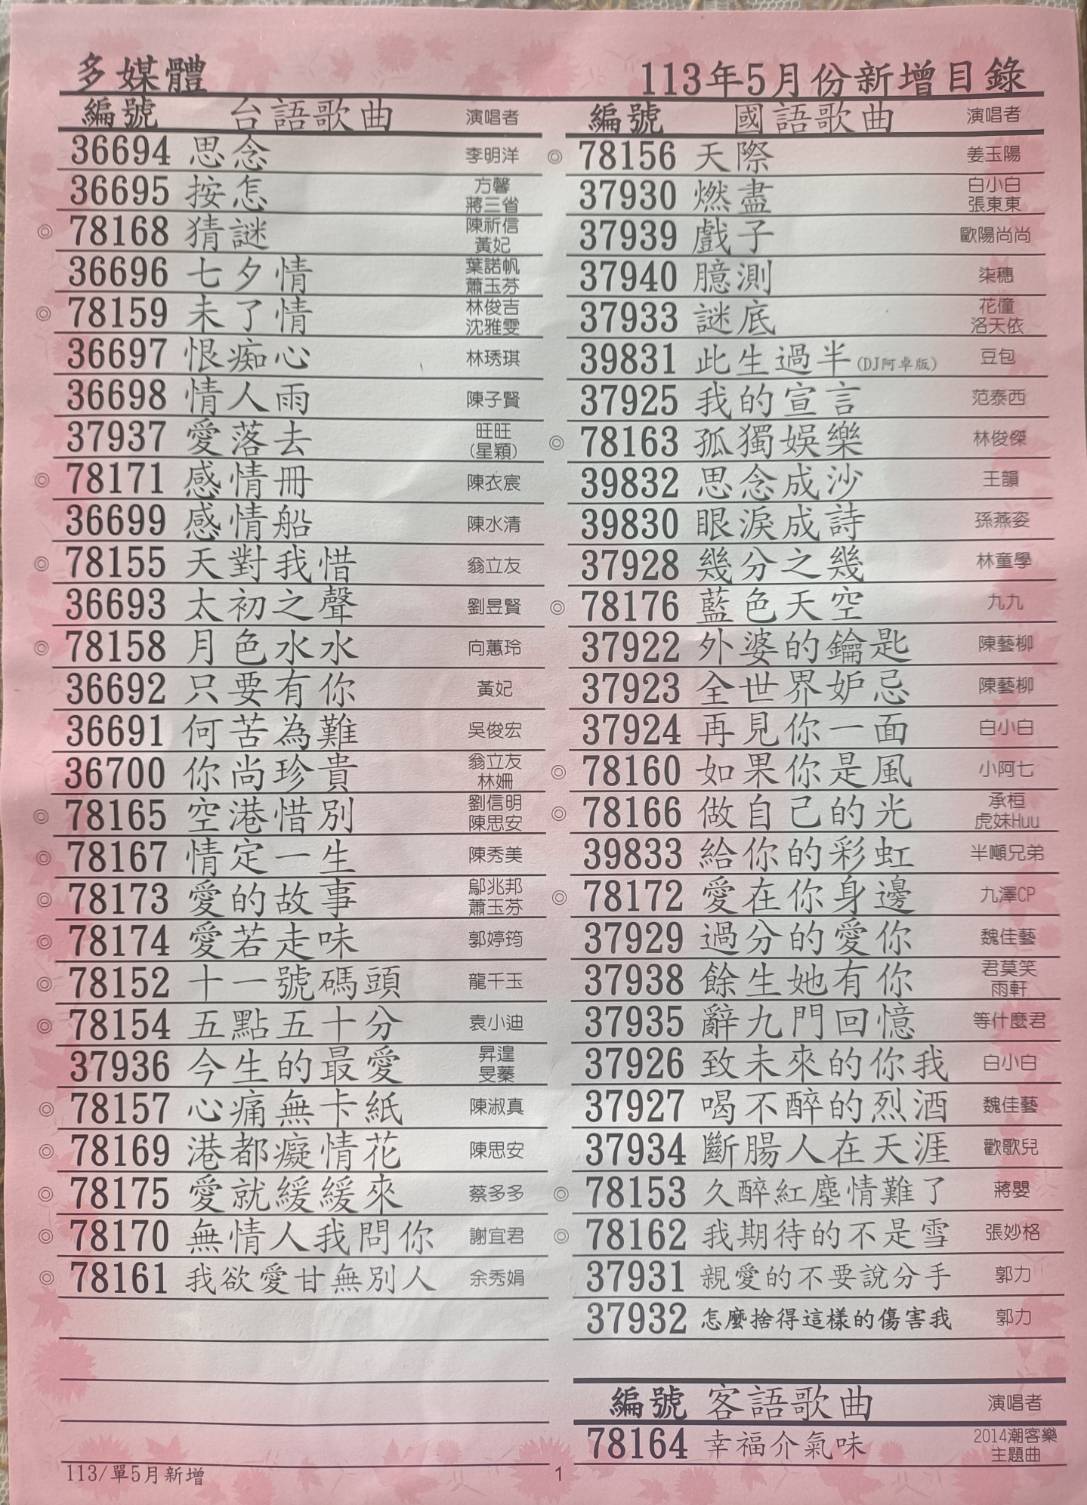 多媒體 113年5月份新增目錄
編號 台語歌曲 演唱者
36694 思念 李明洋
36695 按怎 方馨 蔣三省
◎ 78168 猜謎 陳祈信 黃妃
36696 七夕情 葉諾帆 蕭玉芬
◎ 78159 未了情 林俊吉 沈雅雯
36697 恨痴心 林琇琪
36698 情人雨 陳子賢
37937 愛落去 旺旺 (星穎)
◎ 78171 感情冊 陳衣宸
36699 感情船 陳水清
◎ 78155 天對我惜 翁立友
36693 太初之聲 劉昱賢
◎ 78158 月色水水 向蕙玲
36692 只要有你 黃妃
36691 何苦為難 吳俊宏
36700 你尚珍貴 翁立友 林姍
◎ 78165 空港惜別 劉信明 陳思安
◎ 78167 情定一生 陳秀美
◎ 78173 愛的故事 鄔兆邦 蕭玉芬
◎ 78174 愛若走味 郭婷筠
◎ 78152 十一號碼頭 龍千玉
◎ 78154 五點五十分 袁小迪
37936 今生的最愛 昇遑 旻蓁
◎ 78157 心痛無卡紙 陳淑真
◎ 78169 港都癡情花 陳思安
◎ 78175 愛就緩緩來 蔡多多
◎ 78170 無情人我問你 謝宜君
◎ 78161 我欲愛甘無別人 余秀娟
編號 國語歌曲 演唱者
◎ 78156 天際 姜玉陽
37930 燃盡 白小白 張東東
37939 戲子 歐陽尚尚
37940 臆測 柒穗
37933 謎底 花僮 洛天依
39831 此生過半(DJ阿卓版) 豆包
37925 我的宣言 范泰西
◎ 78163 孤獨娛樂 林俊傑
39832 思念成沙 王韻
39830 眼淚成詩 孫燕姿
37928 幾分之幾 林童學
◎ 78176 藍色天空 九九
37922 外婆的鑰匙 陳藝柳
37923 全世界妒忌 陳藝柳
37924 再見你一面 白小白
◎ 78160 如果你是風 小阿七
◎ 78166 做自己的光 承桓 虎妹Huu
39833 給你的彩虹 半噸兄弟
◎ 78172 愛在你身邊 九澤CP
37929 過分的愛你 魏佳藝
37938 餘生她有你 君莫笑 雨軒
37935 辭九門回憶 等什麼君
37926 致未來的你我 白小白
37927 喝不醉的烈酒 魏佳藝
37934 斷腸人在天涯 歡歌兒
◎ 78153 久醉紅塵情難了 蔣嬰
◎ 78162 我期待的不是雪 張妙格
37931 親愛的不要說分手 郭力
37932 怎麼捨得這樣的傷害我 郭力
編號 客語歌曲 演唱者
78164 幸福介氣味 2014潮客樂 主題曲
113/單5月新增 1